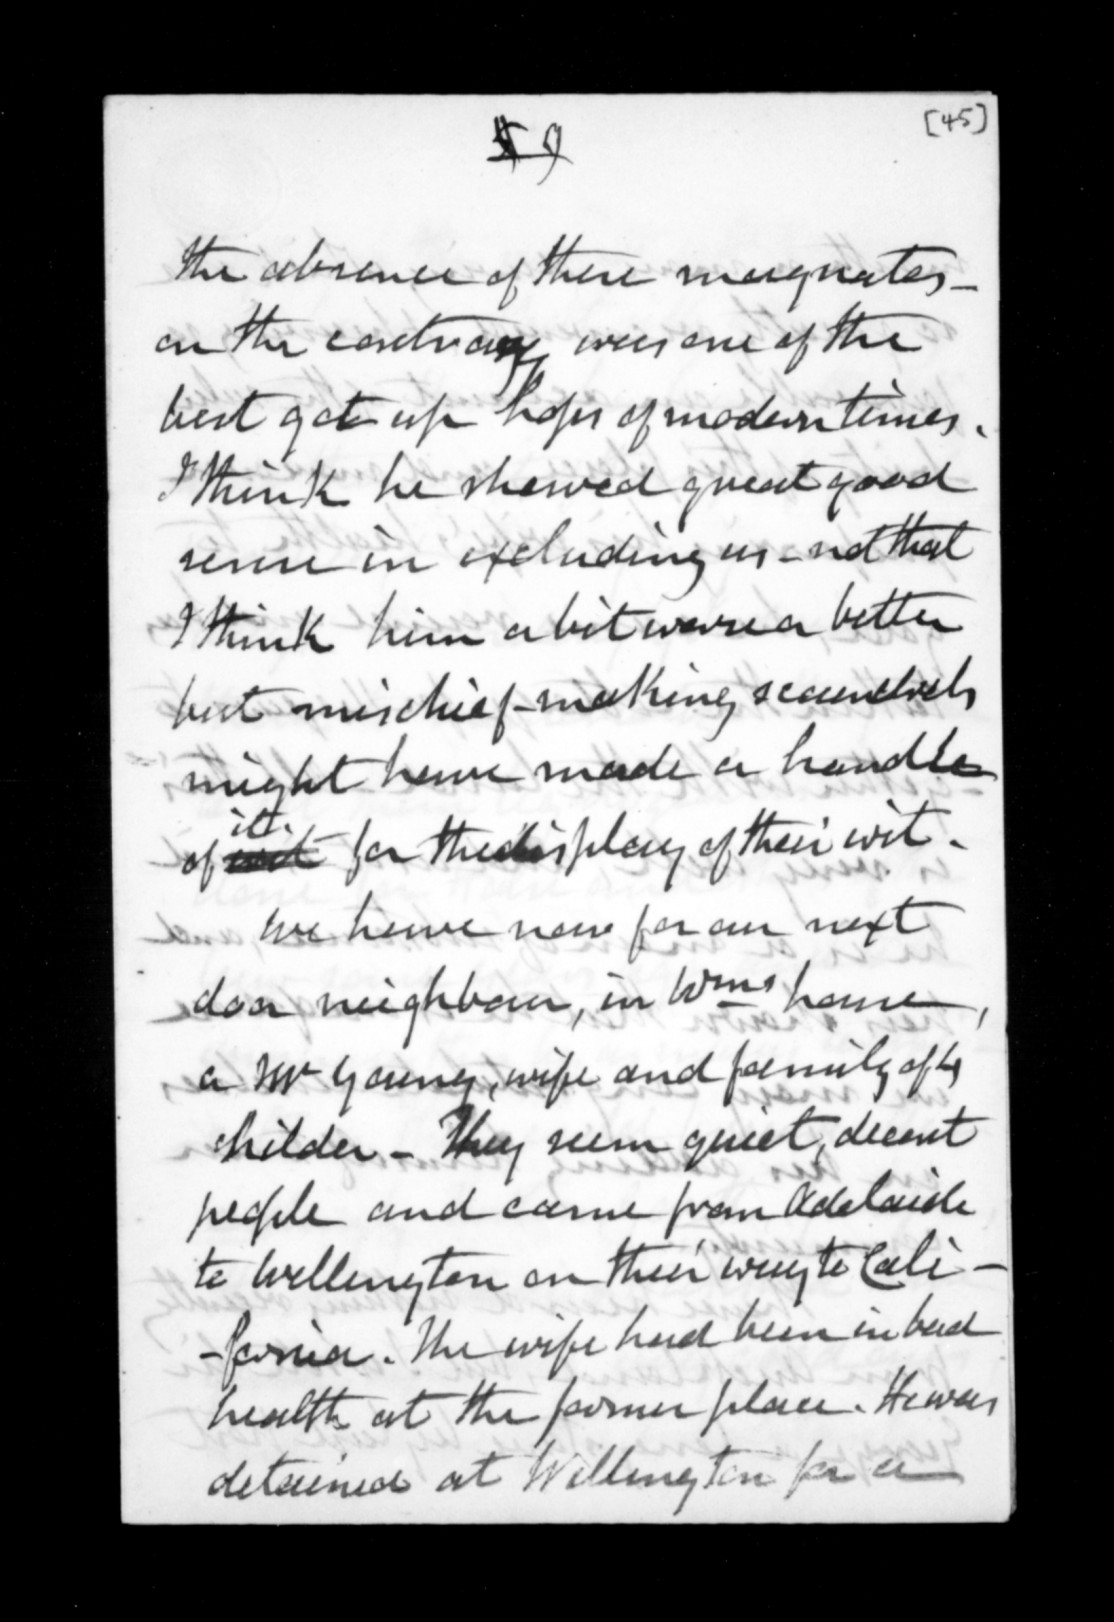 [45]
9
the absence of these magnates -
on the contrary was one of the
best got up hops of modern times.
I think he shewed great good
sense in excluding us - not that
I think him a bit worse or better
but mischief-making scoundrels
might have made a handle
it.
of for the display of their wit.
We have now for our next
door neighbour, in Wms house,
a Mr Young, wife and family of 4
childer - They seem quiet, decent
people and came from Adelaide
to Wellington on their way to Cali-
-fornia. The wife had been in bad
health at the former place. He was
detained at Wellington for a